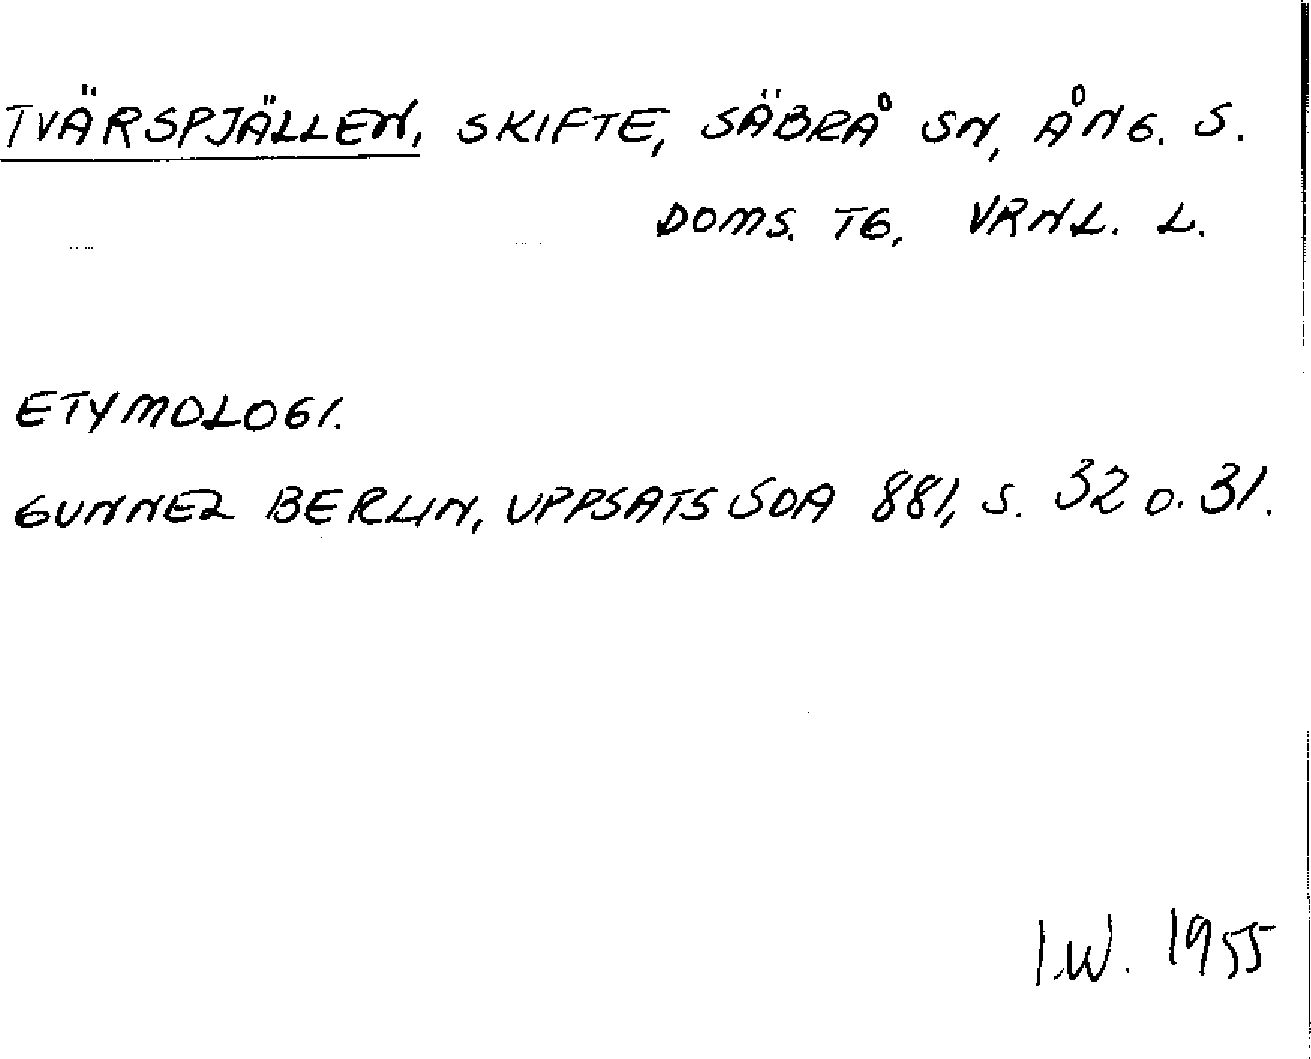 TVÄRSPJÄLLEN, SKIFTE, SÄBRÅ SN, ÅNG. S.
DOMS. TG, VRNL. L.
ETYMOLOGI.
GUNNEL BERLIN, UPPSATS SOA 881, S. 32 o. 31.
I.W. 1955